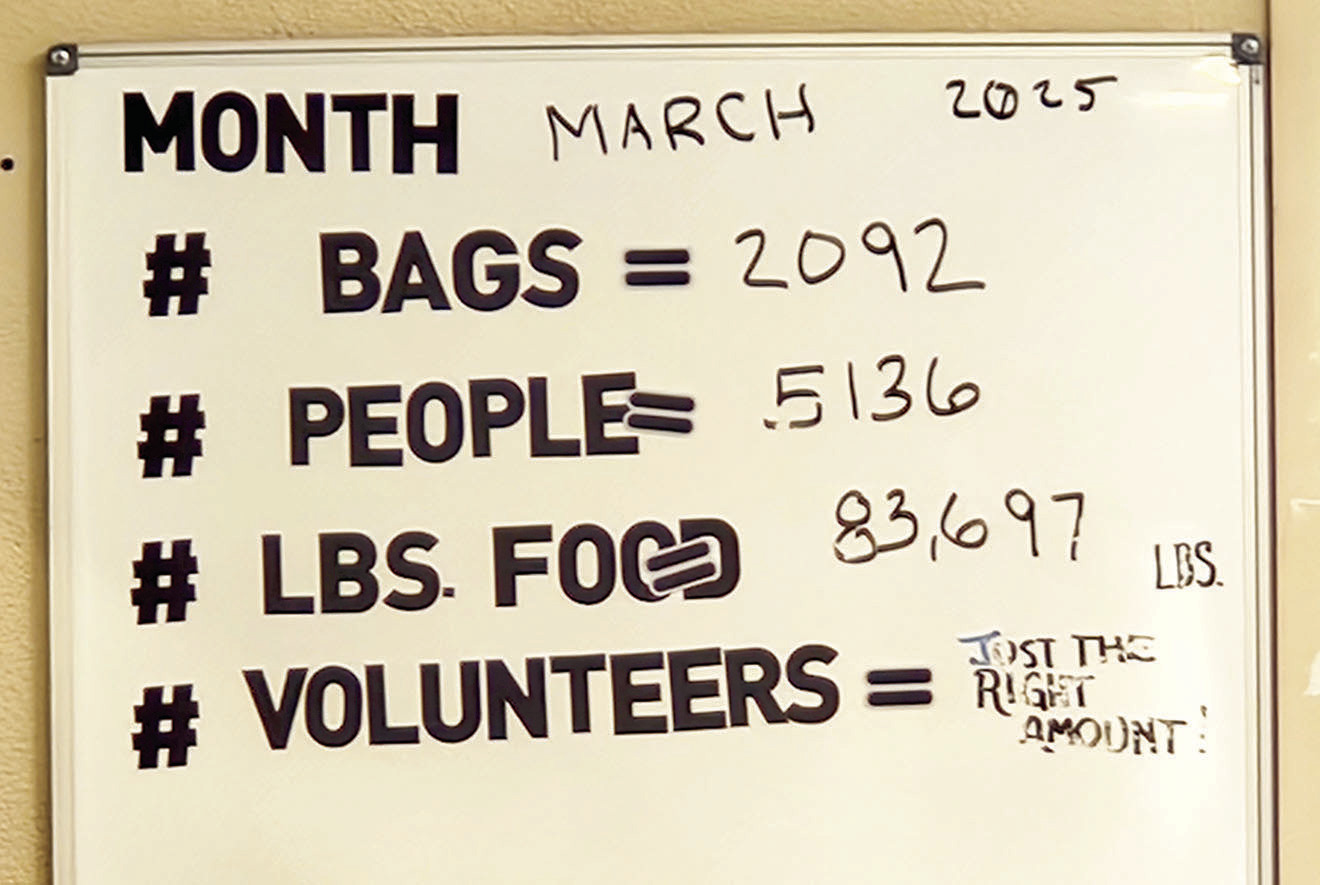 MONTH MARCH 2025
# BAGS = 2092
# PEOPLE = 5136
# LBS. FOOD = 83,697 LBS.
# VOLUNTEERS = JUST THE
RIGHT
AMOUNT!